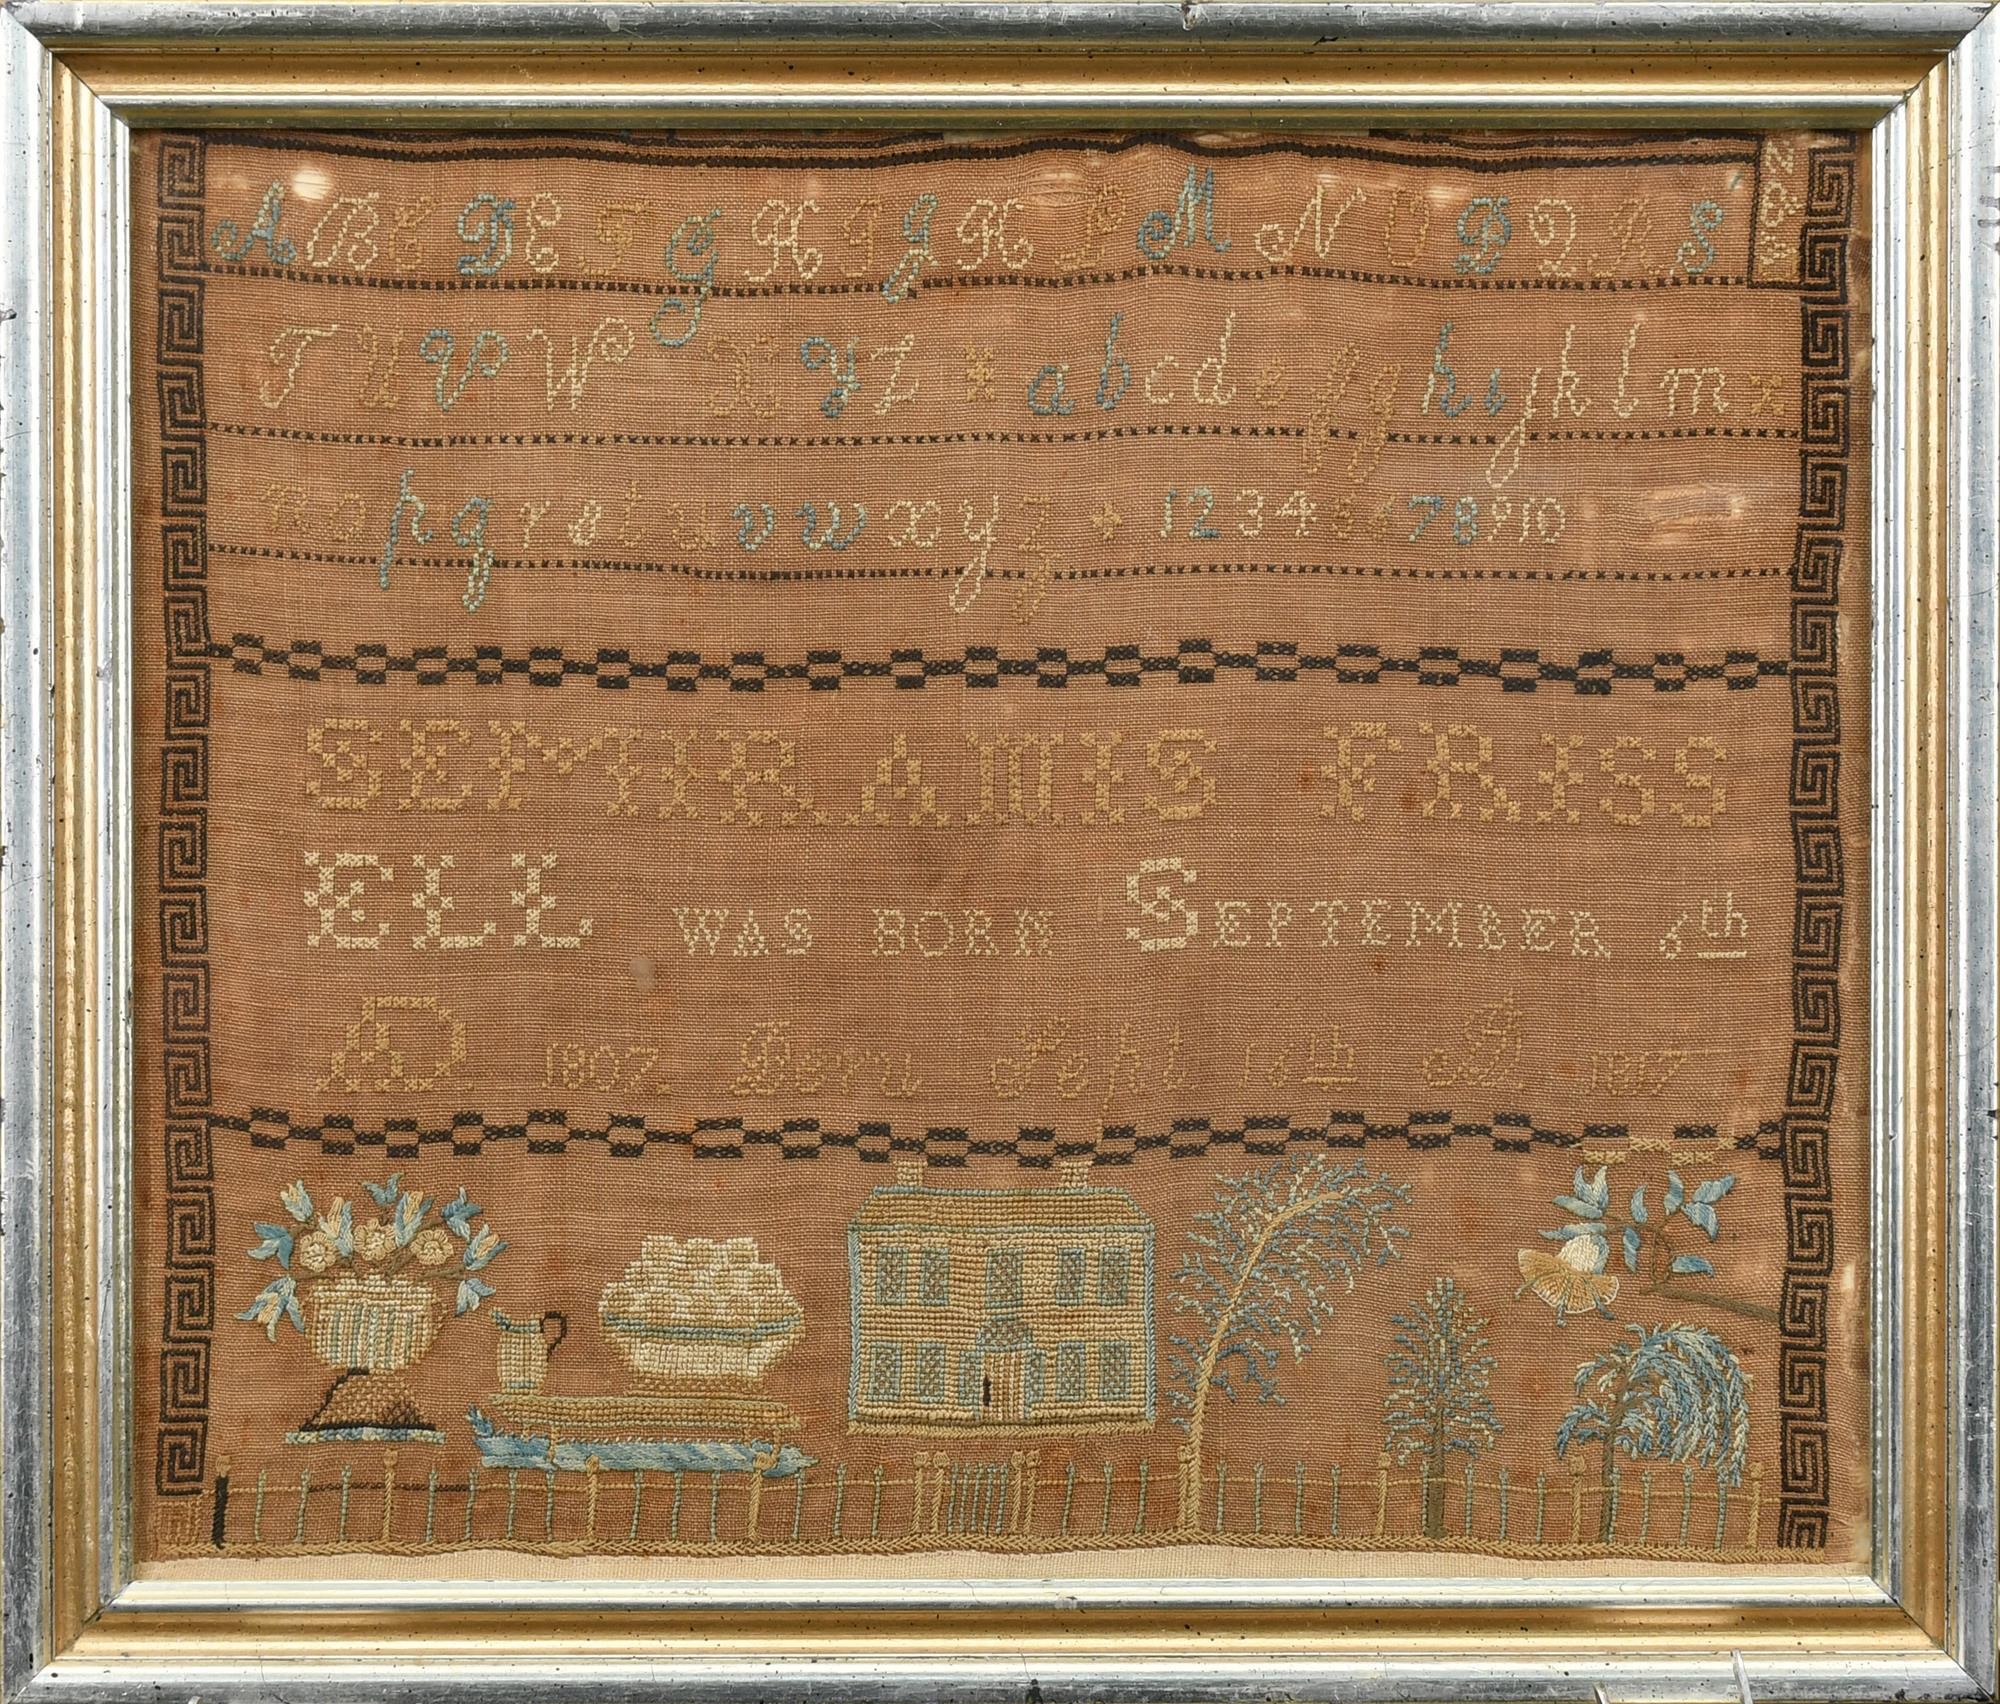 A B C D E F G H I J K L M N O P Q R S
T U V W X Y Z a b c d e f g h i j k l m
n o p q r s t u v w x y z 1 2 3 4 5 6 7 8 9 10
SEMIRAMIS FRISS
ELL WAS BORN SEPTEMBER 6th
AD 1807. Peru Sept 16th A 1817